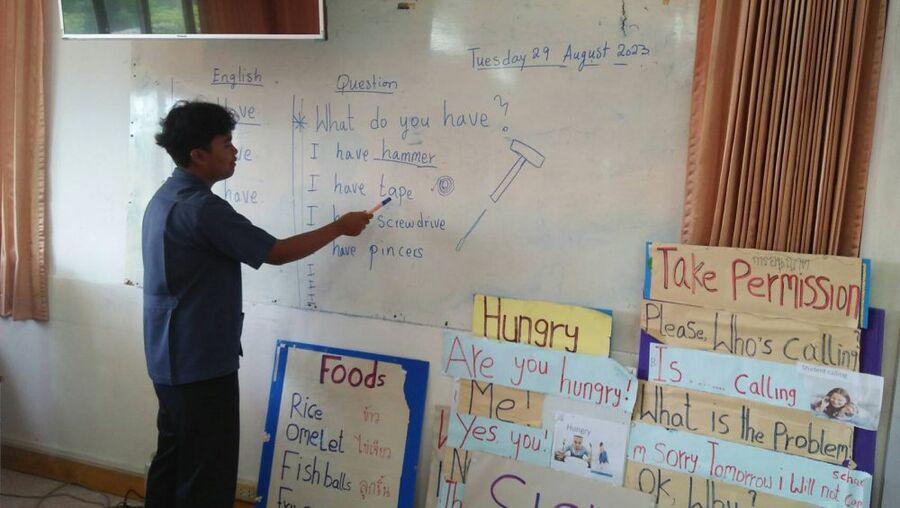 Tuesday 29 August 2023
English
Have
ve
have
Question
* What do you have?
I have hammer
I have tape
I screwdrive
have pincers
I
I
I
Foods
Rice ข้าว
Omelet ไข่เจียว
Fishballs ลูกชิ้น
Hungry
Are you hungry!
Me!
Yes you!
Hungry
Take Permission
Please, Who's Calling?
Is....... Calling
Student calling
What is the Problem
m Sorry Tomorrow I will not can
OK, Why?